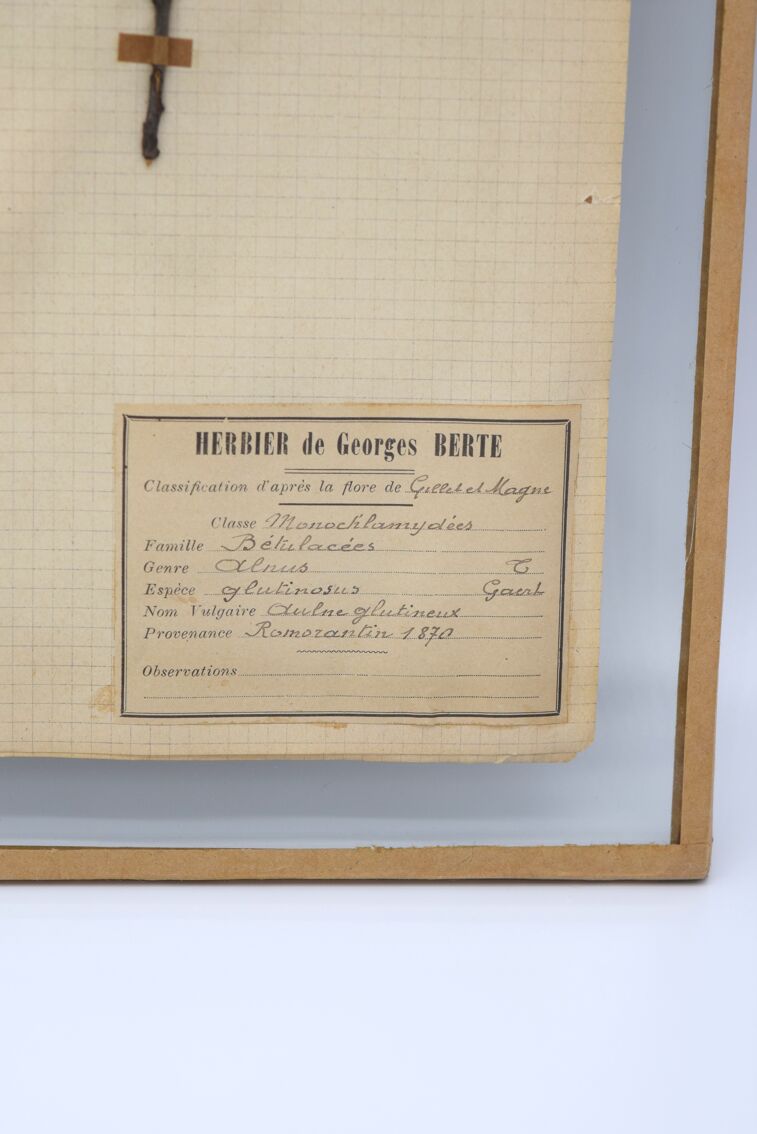 HERBIER de Georges BERTE
Classification d'après la flore de Gillet et Magne
Classe Monochlamydées
Famille Bétulacées
Genre Alnus T
Espèce glutinosus Gaert
Nom Vulgaire Aulne glutineux
Provenance Romorantin 1870
Observations